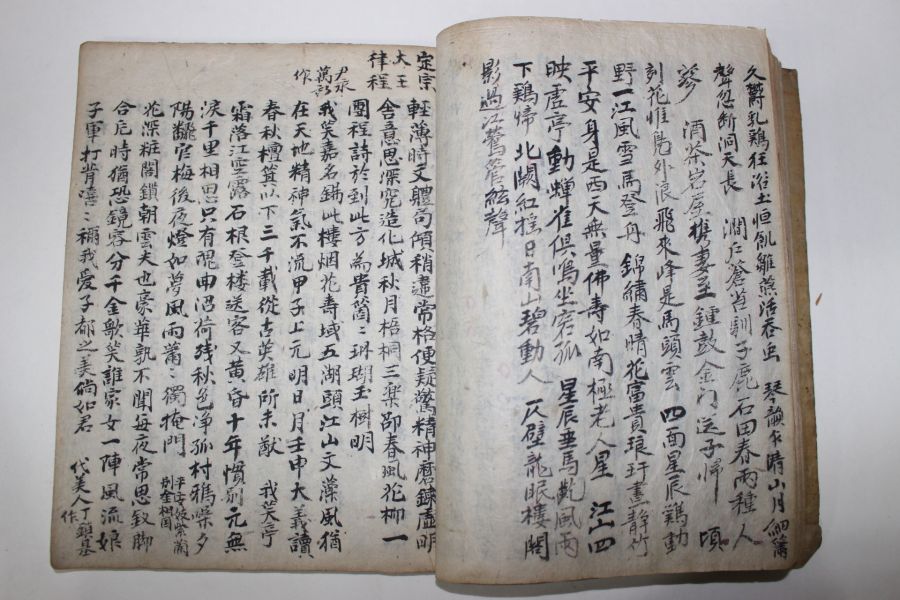 久欝乳鷄狂浴土恒飢雛燕活吞虫 琴韻乍晴山月
聲忽斷洞天長 澗戶蒼苔馴子鹿石田春雨種人
蔘 酒茶岩屋携妻至鍾鼓金門送子歸 頃
刻花惟鳥外浪飛來峰是馬頭雲 四面星辰鷄動
野一江風雪馬登舟 錦繡春晴花富貴琅玕晝靜竹
平安身是西天無量佛壽如南極老人星 江山四
映虛亭動蟬雀俱鳴坐客孤 星辰垂馬 風雨
下鷄啼 北闕紅搖日南山碧動人 仄壁龍眠樓閣
影過江鶯管絃聲
定宗
大王
律程
輕薄時文軆句傾稍違常格便疑驚精神磨鍊虛明
舍意思深究造化城秋月梧桐三樂邵春風花柳一
團程詩於到此方爲貴箇箇琳瑚玉樹明
尹永
萬
作
我笑嘉名錫此樓烟花壽域五湖頭江山文藻風猶
在天地精神氣不流甲子上元明日月壬申大義讀
春秋檀箕以下三千載從古英雄所未猷 我笑亭
霜落江空露石根登楼送客又黃昏十年慣別元無
淚千里相思只有 南沼荷殘秋色净孤村鴉噪夕
陽飜官梅後夜燈如夢風雨蕭々獨掩門
平安妓紫蘭
別金相国
花深粧閣鎖朝雲夫也豪華孰不聞每夜常思致脚
合危時猶恐鏡容分千金歌笑誰家女一陣風流娘
子軍打背嘻々禰我愛子都之美倘如君
代美人丁鎭基
作